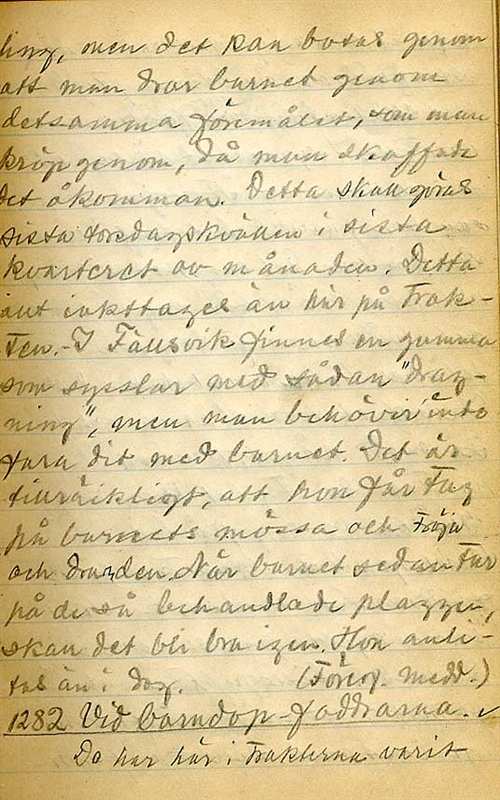 ling, men det kan botas genom
att man drar barnet genom
detsamma föremålet, som man
kröp genom, då man skaffade
det åkomman. Detta skall göras
sista torsdagskvällen i sista
kvarteret av månaden. Detta
iakttages än här på trak-
ten. - I Fallsvik finnes en gumma
som sysslar med sådan "drag-
ning", men man behöver inte
fara dit med barnet. Det är
tillräckligt, att hon får tag
på barnets mössa och tröja
och drar den. När barnet sedan tar
på de så behandlade plaggen,
skall det bli bra igen. Hon anli-
tas än i dag. (Föreg. medd.)
1282 Vid barndop - faddrarna. ✓
De har här i trakterna varit